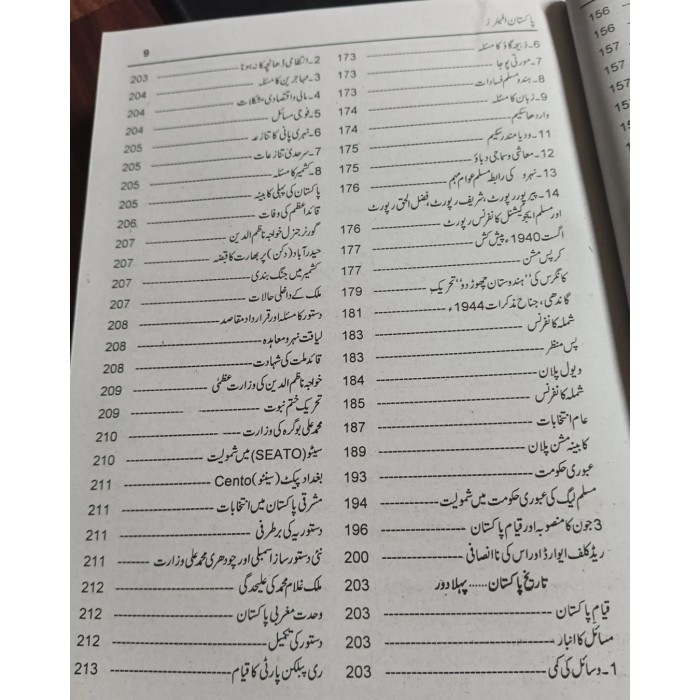 پاکستان افیئرز
9
6۔ذبیحہ گاؤ کا مسئلہ 173
7۔مورتی پوجا 173
8۔ہندو مسلم فسادات 173
9۔زبان کا مسئلہ 174
واردھا سکیم 174
11۔ودیا مندر سکیم 175
12۔معاشی و سماجی دباؤ 175
13۔نہرو کی رابطہ مسلم عوام مہم 176
14۔پیرپور رپورٹ، شریف رپورٹ، فضل الحق رپورٹ
اور مسلم ایجوکیشنل کانفرنس رپورٹ 176
اگست 1940ء پیش کش 177
کرپس مشن 177
کانگرس کی "ہندوستان چھوڑ دو" تحریک 179
گاندھی، جناح مذاکرات 1944ء 181
شملہ کانفرنس 183
پس منظر 183
ویول پلان 184
شملہ کانفرنس 185
عام انتخابات 187
کابینہ مشن پلان 189
عبوری حکومت 193
مسلم لیگ کی عبوری حکومت میں شمولیت 194
3 جون کا منصوبہ اور قیام پاکستان 196
ریڈ کلف ایوارڈ اور اس کی ناانصافی 200
تاریخ پاکستان......پہلا دور 203
قیام پاکستان 203
مسائل کا انبار 203
1۔وسائل کی کمی 203
2۔انتظامی ڈھانچہ کا نہ ہونا 203
3۔مہاجرین کا مسئلہ 204
4۔مالی و اقتصادی مشکلات 204
5۔فوجی مسائل 204
6۔نہری پانی کا تنازعہ 205
7۔سرحدی تنازعات 205
8۔کشمیر کا مسئلہ 205
پاکستان کی پہلی کابینہ 205
قائداعظم کی وفات 206
گورنر جنرل خواجہ ناظم الدین 207
حیدرآباد (دکن) پر بھارت کا قبضہ 207
کشمیر میں جنگ بندی 207
ملک کے داخلی حالات 207
دستور کا مسئلہ اور قرارداد مقاصد 208
لیاقت نہرو معاہدہ 208
قائد ملت کی شہادت 208
خواجہ ناظم الدین کی وزارت عظمیٰ 209
تحریک ختم نبوت 209
محمد علی بوگرہ کی وزارت 210
سیٹو (SEATO) میں شمولیت 210
بغداد پیکٹ (سینٹو) Cento 211
مشرقی پاکستان میں انتخابات 211
دستوریہ کی برطرفی 211
نئی دستور ساز اسمبلی اور چودھری محمد علی وزارت 211
ملک غلام محمد کی علیحدگی 212
وحدت مغربی پاکستان 212
دستور کی تکمیل 212
ری پبلکن پارٹی کا قیام 213
156
156
157
157
157
15
15